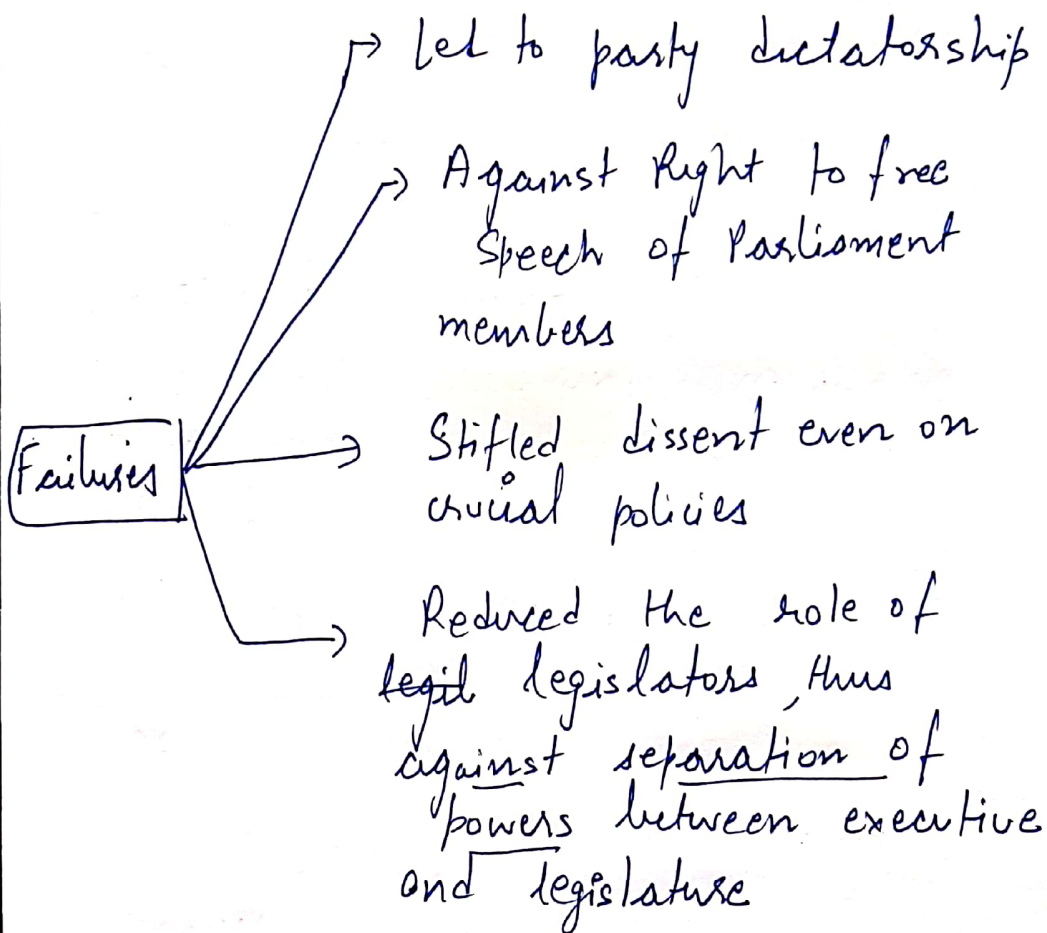 Let to party dictatorship
Against Right to free
Speech of Parliament
members
Failures
Stifled dissent even on
crucial policies
Reduced the role of
legil legislators, thus
against separation of
powers between executive
and legislature